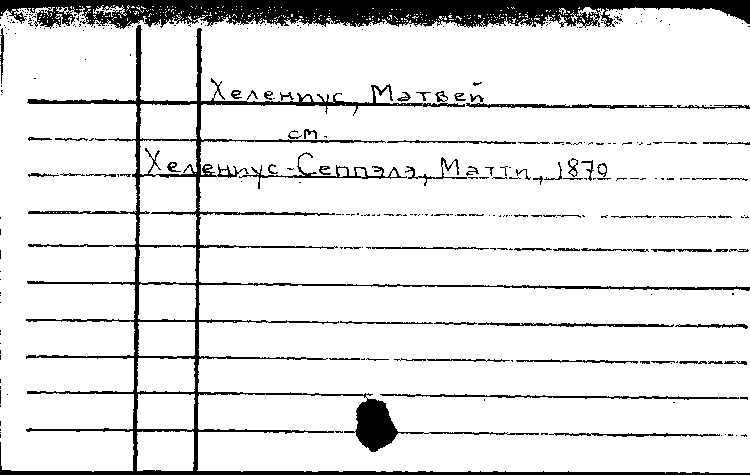 Хелениус, Матвей
см.
Хелениус-Сеппэлэ, Матти, 1870